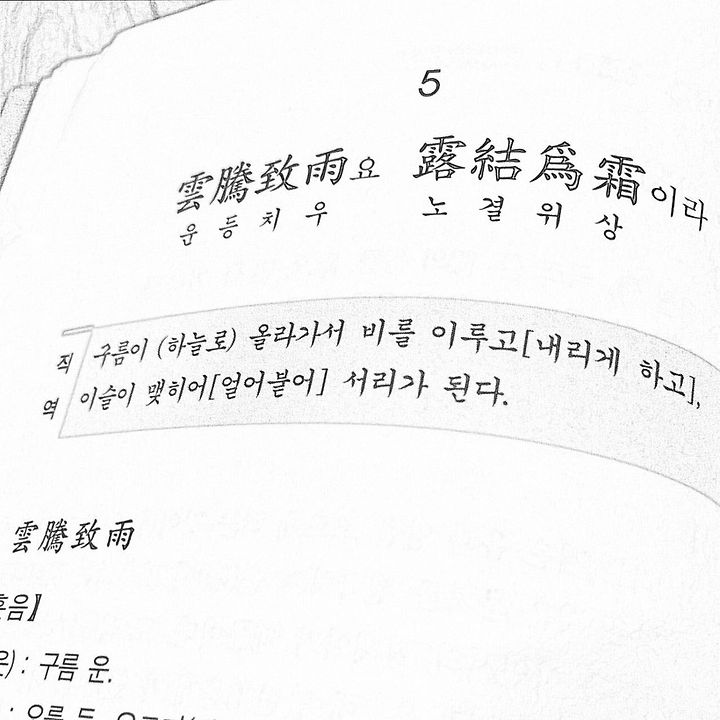 5
雲騰致雨요 露結爲霜이라
운등치우 노결위상
직역
구름이 (하늘로) 올라가서 비를 이루고[내리게 하고],
이슬이 맺히어[얼어붙어] 서리가 된다.
雲騰致雨
음】
) : 구름 운.